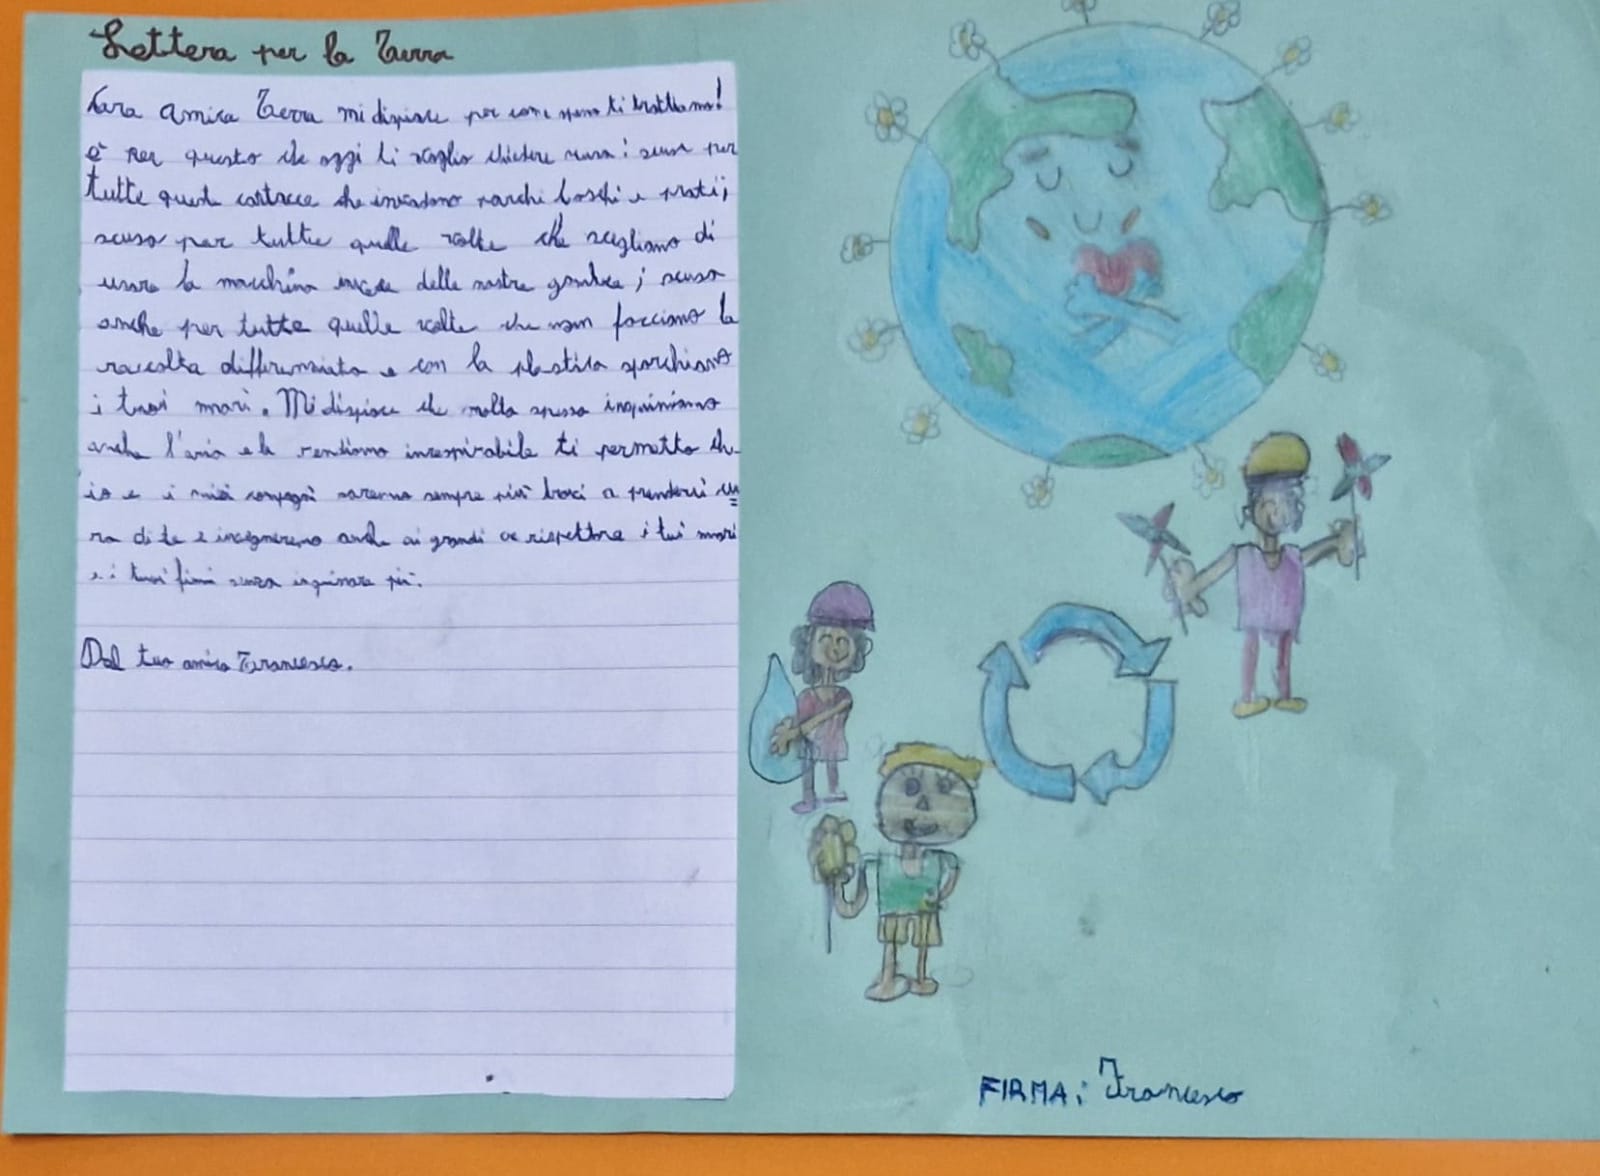 Lettera per la Terra
Cara amica Terra mi dispiace per come spesso ti trattiamo!
è per questo che oggi ti voglio chiedere scusa: scusa per
tutte queste cartacce che invadono parchi boschi e prati;
scusa per tutte quelle volte che scegliamo di
usare la macchina invece delle nostre gambe; scusa
anche per tutte quelle volte che non facciamo la
raccolta differenziata e con la plastica sporchiamo
i tuoi mari. Mi dispiace che molto spesso inquiniamo
anche l'aria e la rendiamo irrespirabile ti permetto che
io e i miei compagni saremo sempre più bravi a prenderci cu
ra di te e insegneremo anche ai grandi a rispettare i tuoi mari
e i tuoi fiumi senza inquinare più.
Dal tuo amico Francesco.
FIRMA: Francesco